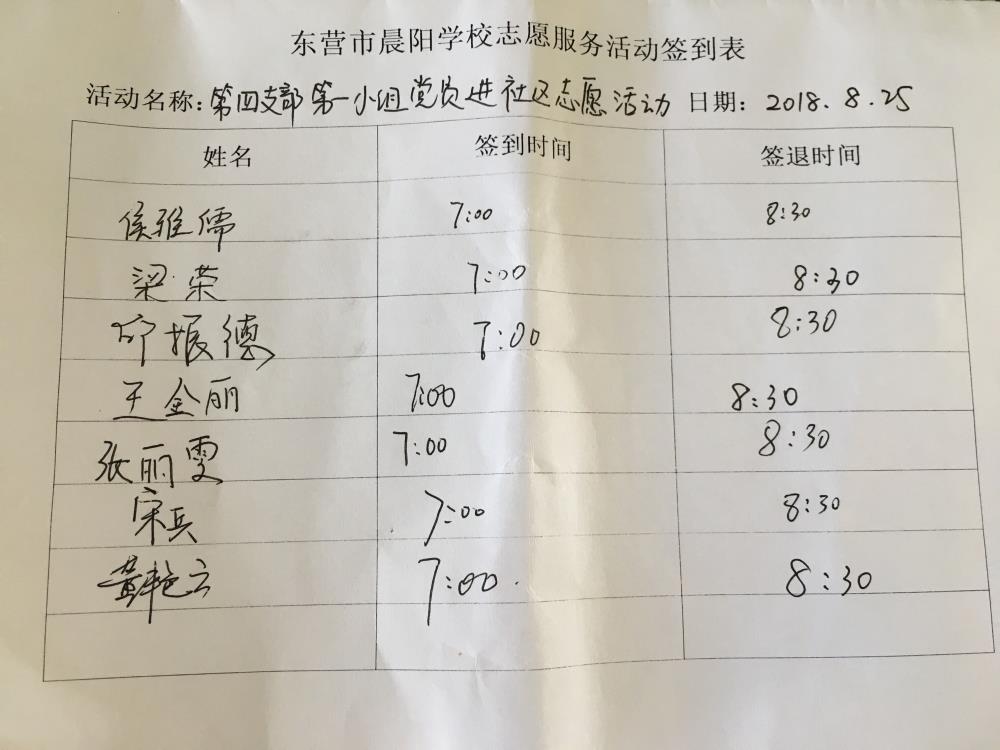 东营市晨阳学校志愿服务活动签到表
活动名称:第四支部第一小组党员进社区志愿活动 日期: 2018.8.25
姓名 签到时间 签退时间
侯雅儒 7:00 8:30
梁荣 7:00 8:30
邱振德 7:00 8:30
王金丽 7:00 8:30
张丽雯 7:00 8:30
宋兵 7:00 8:30
黄艳云 7:00 8:30